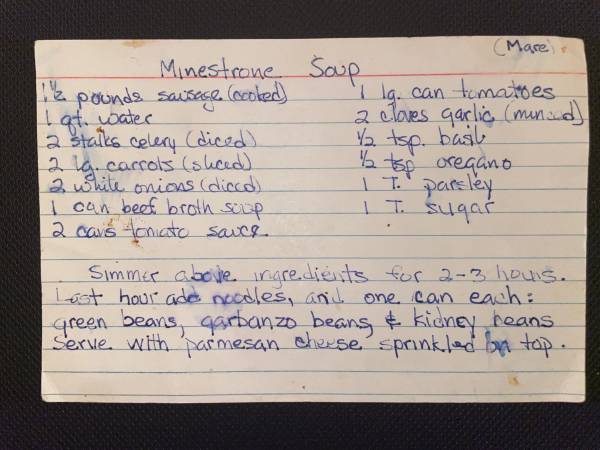 (Mare)
Minestrone Soup
1 1/2 pounds sausage (cooked)
1 qt. water
2 stalks celery (diced)
2 lg. carrots (sliced)
2 white onions (diced)
1 can beef broth soup
2 cans tomato sauce
1 lg. can tomatoes
2 cloves garlic (minced)
1/2 tsp. basil
1/2 tsp oregano
1 T. parsley
1 T. sugar
Simmer above ingredients for 2-3 hours.
Last hour add noodles, and one can each:
green beans, garbanzo beans, & kidney beans
Serve with parmesan cheese sprinkled on top.